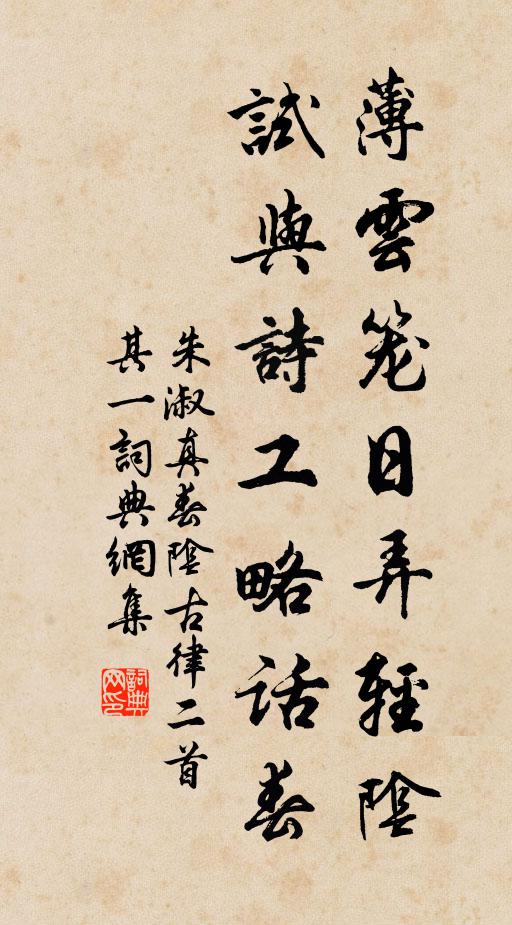 薄雲笼日弄輕陰
試與詩工略話春
朱淑真春陰古律二首
其一詞典網集
詞典网印